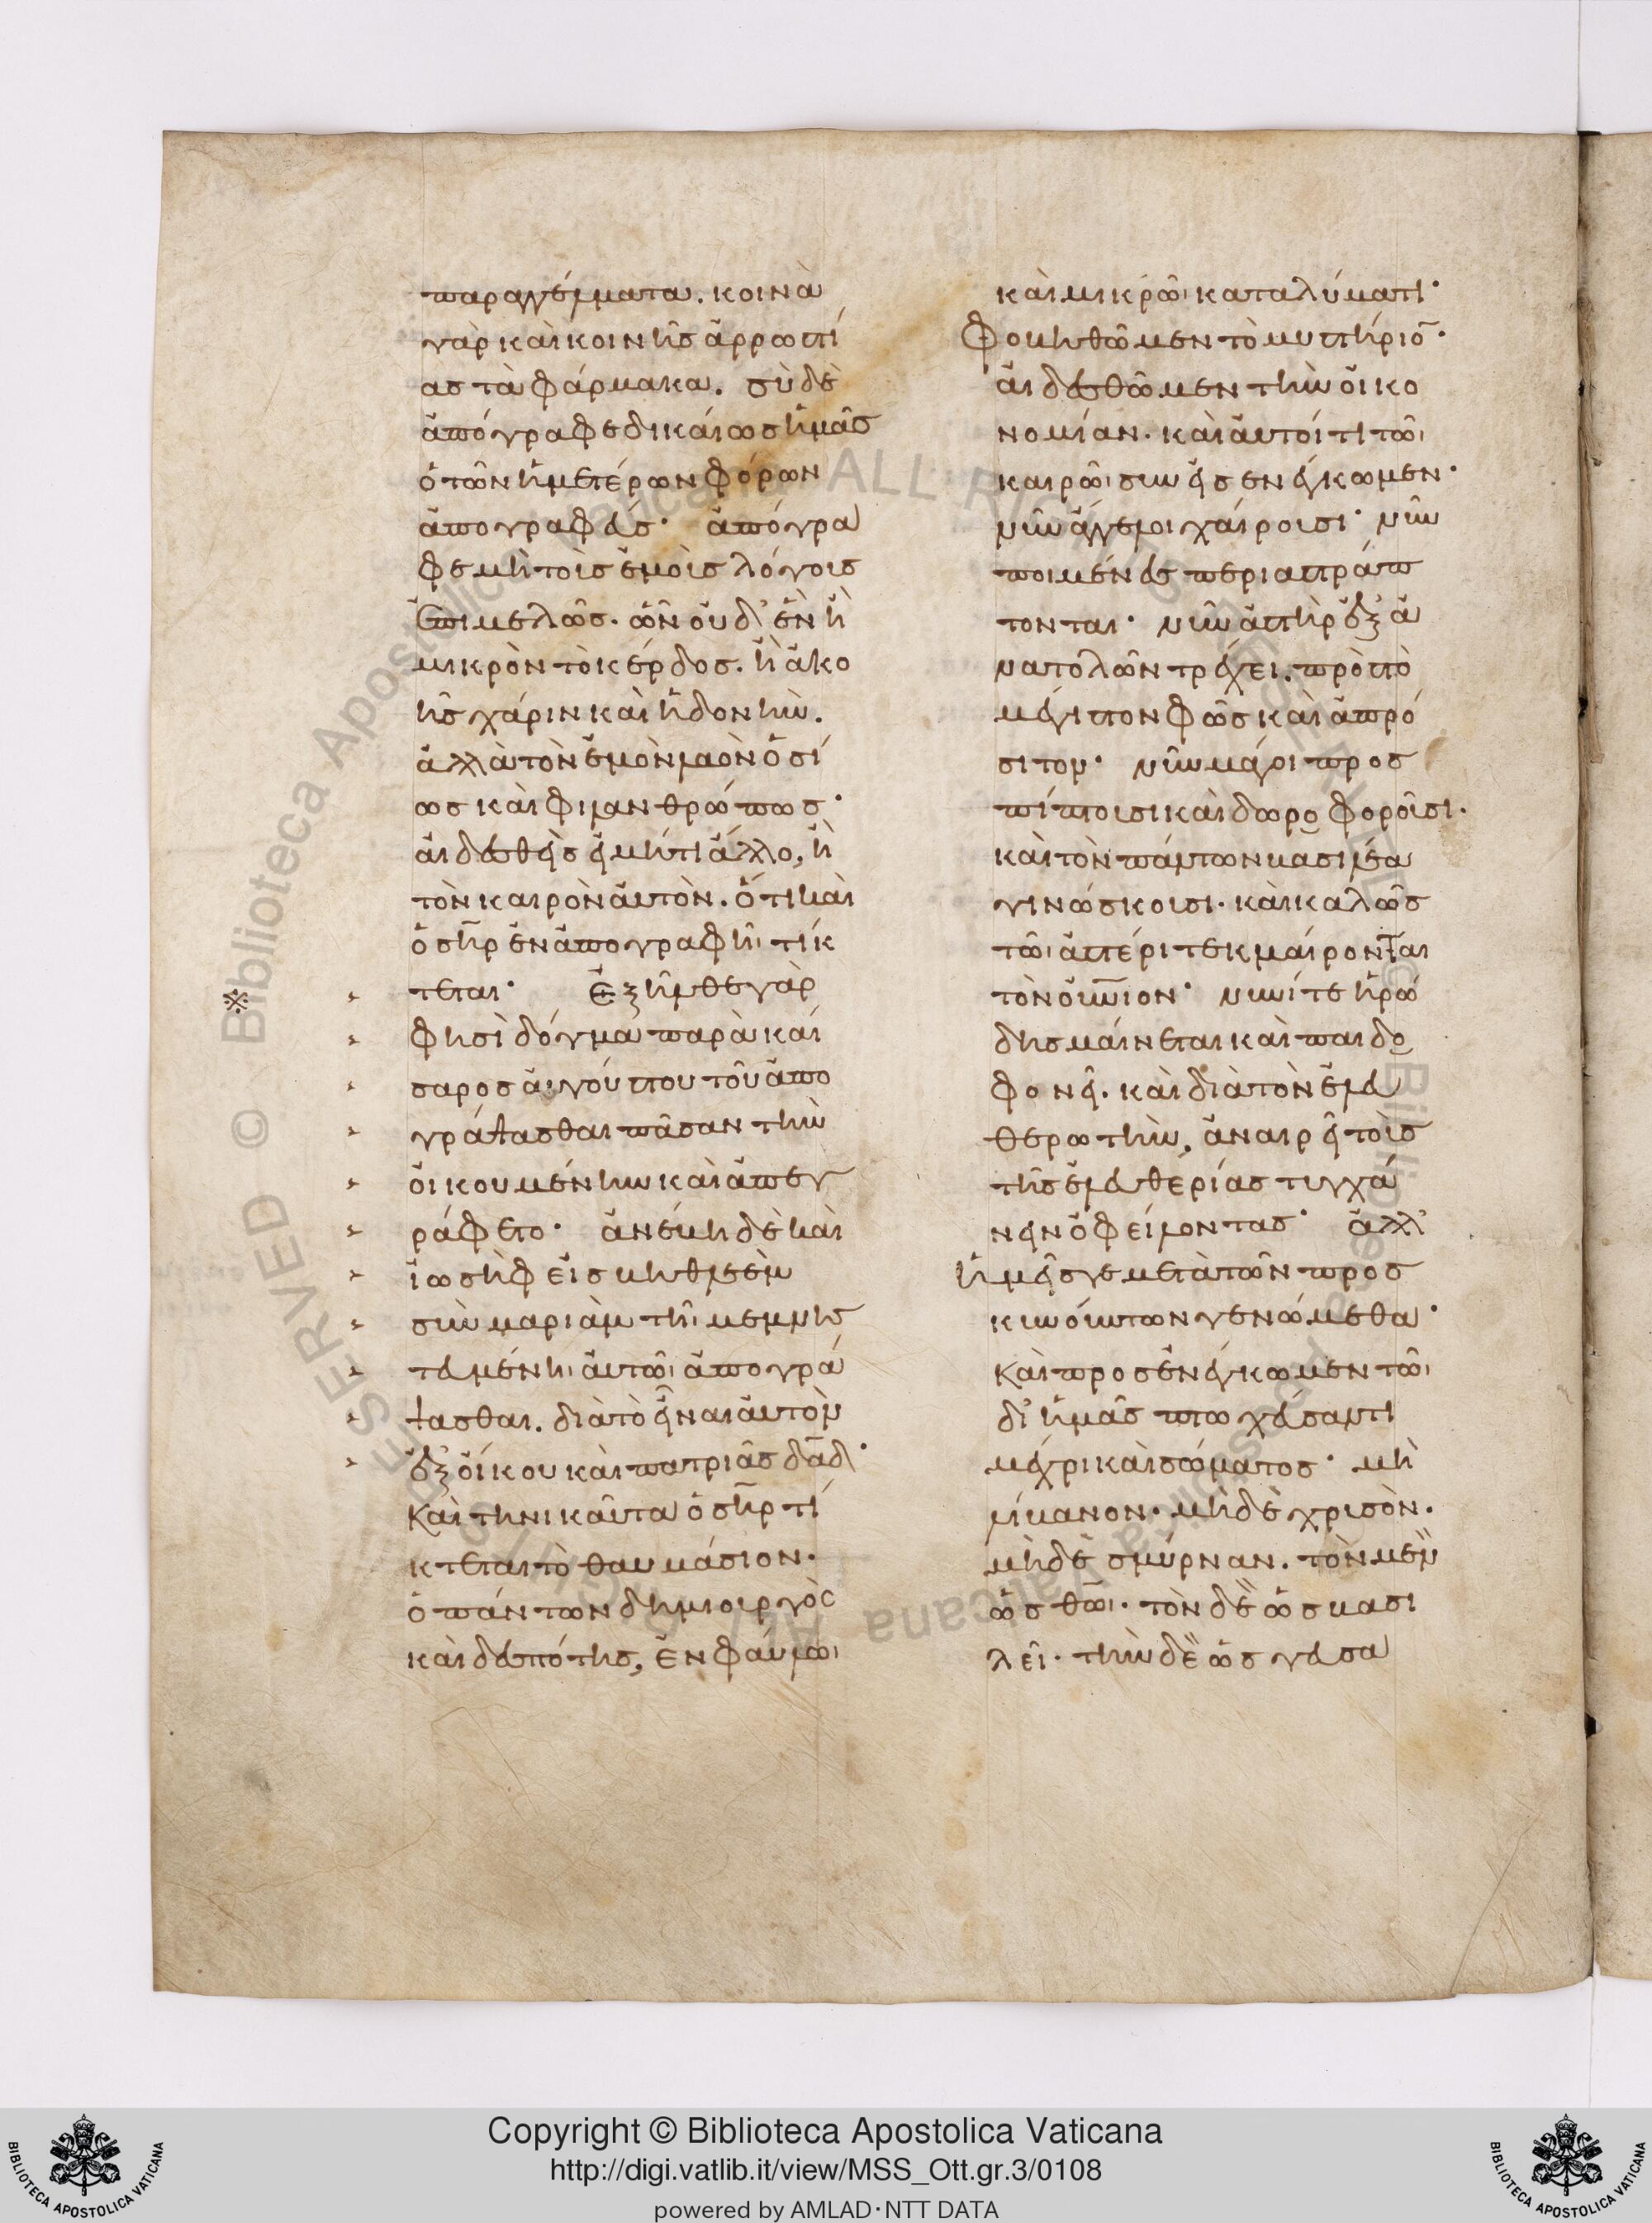 παραγγέλματα. κοινὰ
γὰρ καὶ κοινῆς ἀρρωστί
ας τὰ φάρμακα. σὺ δὲ
ἀπόγραφε δικαίως ἡμᾶς
ὁ τῶν ἡμετέρων φόρων
ἀπογραφεύς· ἀπόγρα
φε μὴ τοῖς ἐμοῖς λόγοις
ἐπιμελῶς. ὧν οὐδὲν ἢ
μικρὸν τὸ κέρδος. ἢ ἀκο
ῆς χάριν καὶ ἡδονὴν.
ἀλλὰ τὸν ἐμὸν λαὸν ὁσί
ως καὶ φιλανθρώπως·
αἰδεσθεὶς εἰ μήτι ἄλλο, ἢ
τὸν καιρὸν αὐτὸν. ὅτι καὶ
ὁ σηρ ἐν ἀπογραφῆι τίκ
τεται· Ἐξῆλθε γὰρ
φησὶ δόγμα παρὰ καί
σαρος αὐγούστου τοῦ ἀπο
γράψασθαι πᾶσαν τὴν
οἰκουμένην καὶ ἀπεγ
ράφετο· ἀνέβη δὲ καὶ
ἰωσὴφ εἰς βηθλεὲμ
σὺν μαριὰμ τῆι μεμνησ
τευμένηι αὐτῶι ἀπογρά
ψασθαι. διὰ τὸ εἶναι αὐτὸν
ἐξ οἴκου καὶ πατριᾶς δαδ·
Καὶ τηνικαῦτα ὁ σηρ τί
κτεται τὸ θαυμάσιον.
ὁ πάντων δημιουργὸς
καὶ δεσπότης, ἐν φαύλωι
καὶ μικρῶι καταλύματι·
Φοβηθῶμεν τὸ μυστήριο·
αἰδεσθῶμεν τὴν οἰκο
νομίαν. καὶ αὐτοί τι τῶι
καιρῶι συνεισενέγκωμεν·
νῦν ἄγγελοι χαίρουσι· νῦν
ποιμένες περιαστράπ
τονται· νῦν ἀστὴρ ἐξ ἀ
νατολῶν τρέχει. πρὸς τὸ
μέγιστον φῶς καὶ ἀπρό
σιτον· νῦν μάγοι προσ
πίπτουσι καὶ δωροφοροῦσι.
καὶ τὸν πάντων βασιλέα
γινώσκουσι. καὶ καλῶς
τῶι ἀστέρι τεκμαίρονται
τὸν οὐνιον· νῦν τε ἡρώ
δης μαίνεται καὶ παιδο
φονεῖ. καὶ διὰ τὸν ἐλευ
θερωτὴν. ἀναιρεῖ τοὺς
τῆς ἐλευθερίας τυγχά
νειν ὀφείλοντας· ἀλλ'
ἡμεῖς γε μετὰ τῶν προσ
κυνούντων γενώμεθα·
Καὶ προσενέγκωμεν τῶι
δι' ἡμᾶς πτωχεύσαντι
μέχρι καὶ σώματος· μὴ
λίβανον. μηδὲ χρυσὸν.
μηδὲ σμύρναν. τὸν μὲν
ὡς θῶι. τὸν δὲ ὡς βασι
λεῖ. τὴν δὲ ὡς γευσα
Copyright © Biblioteca Apostolica Vaticana
http://digi.vatlib.it/view/MSS_Ott.gr.3/0108
powered by AMLAD·NTT DATA
BIBLIOTECA APOSTOLICA VATICANA
BIBLIOTECA APOSTOLICA VATICANA